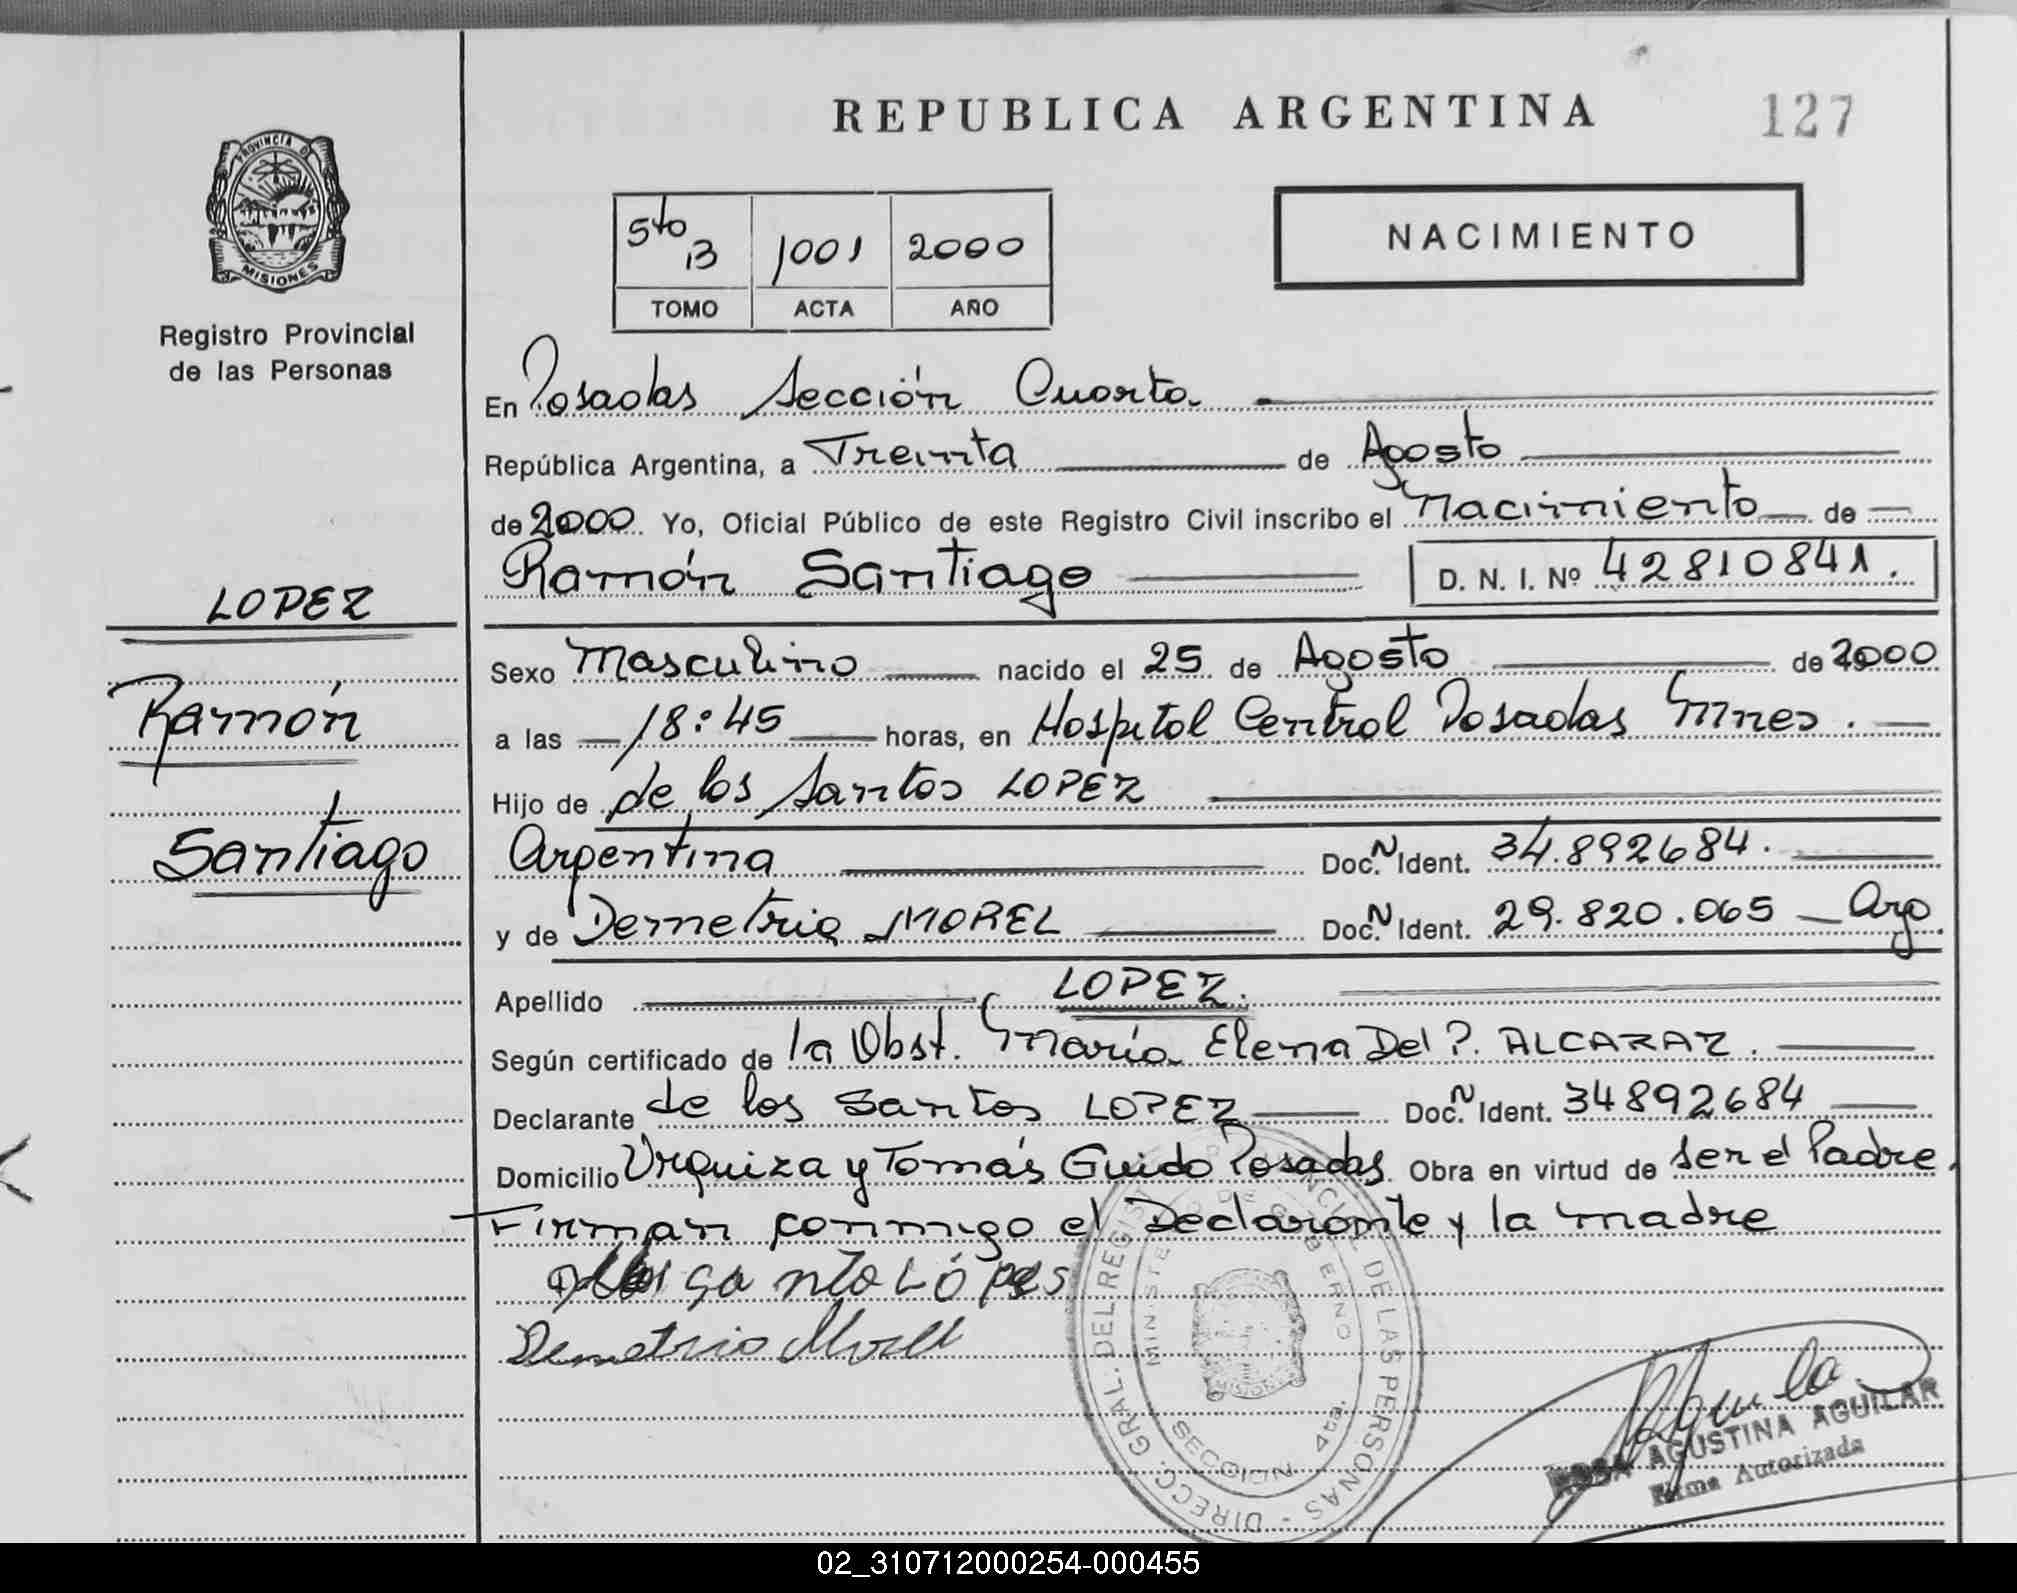 REPUBLICA ARGENTINA
127
PROVINCIA D
MISIONES
Registro Provincial
de las Personas
5to 13 1001 2000
TOMO ACTA AÑO
NACIMIENTO
En Posadas Sección Cuarta
República Argentina, a Treinta de Agosto
de 2000 Yo, Oficial Público de este Registro Civil inscribo el Nacimiento de
Ramón Santiago D. N. I. Nº 42810841.
LOPEZ
Ramón
Santiago
Sexo Masculino nacido el 25 de Agosto de 2000
a las 18:45 horas, en Hospital Central Posadas Mnes.
Hijo de de los Santos LOPEZ
Argentina Doc. N Ident. 34.892684.
y de Demetria MOREL Doc. N Ident. 29.820.065 Arg
Apellido LOPEZ.
Según certificado de la Obst. María Elena Del P. ALCARAZ.
Declarante de los Santos LOPEZ Doc. N Ident. 34892684
Domicilio Urquiza y Tomás Guido Posadas Obra en virtud de ser el Padre.
Firman conmigo el Declarante y la madre
santo López
Demetrio Morel
DIRECC. GRAL. DEL REGIST PROVINCIAL DE LAS PERSONAS -
MINISTERIO DE GOBIERNO
SECCION 4ta.
ROSA AGUSTINA AGUILAR
Firma Autorizada
02_310712000254-000455